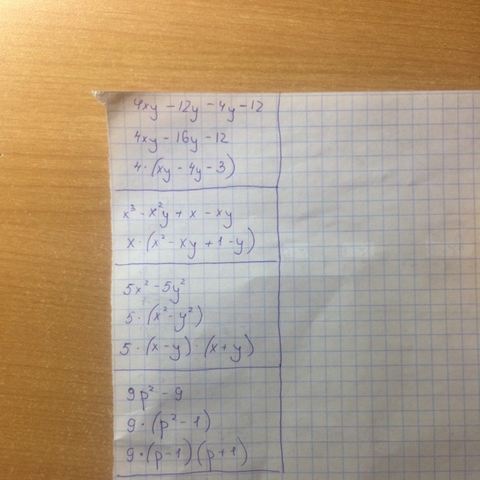 4xy - 12y - 4y - 12
4xy - 16y - 12
4·(xy - 4y - 3)
x³ - x²y + x - xy
x·(x² - xy + 1 - y)
5x² - 5y²
5·(x² - y²)
5·(x - y)·(x + y)
9p² - 9
9·(p² - 1)
9·(p - 1)(p + 1)